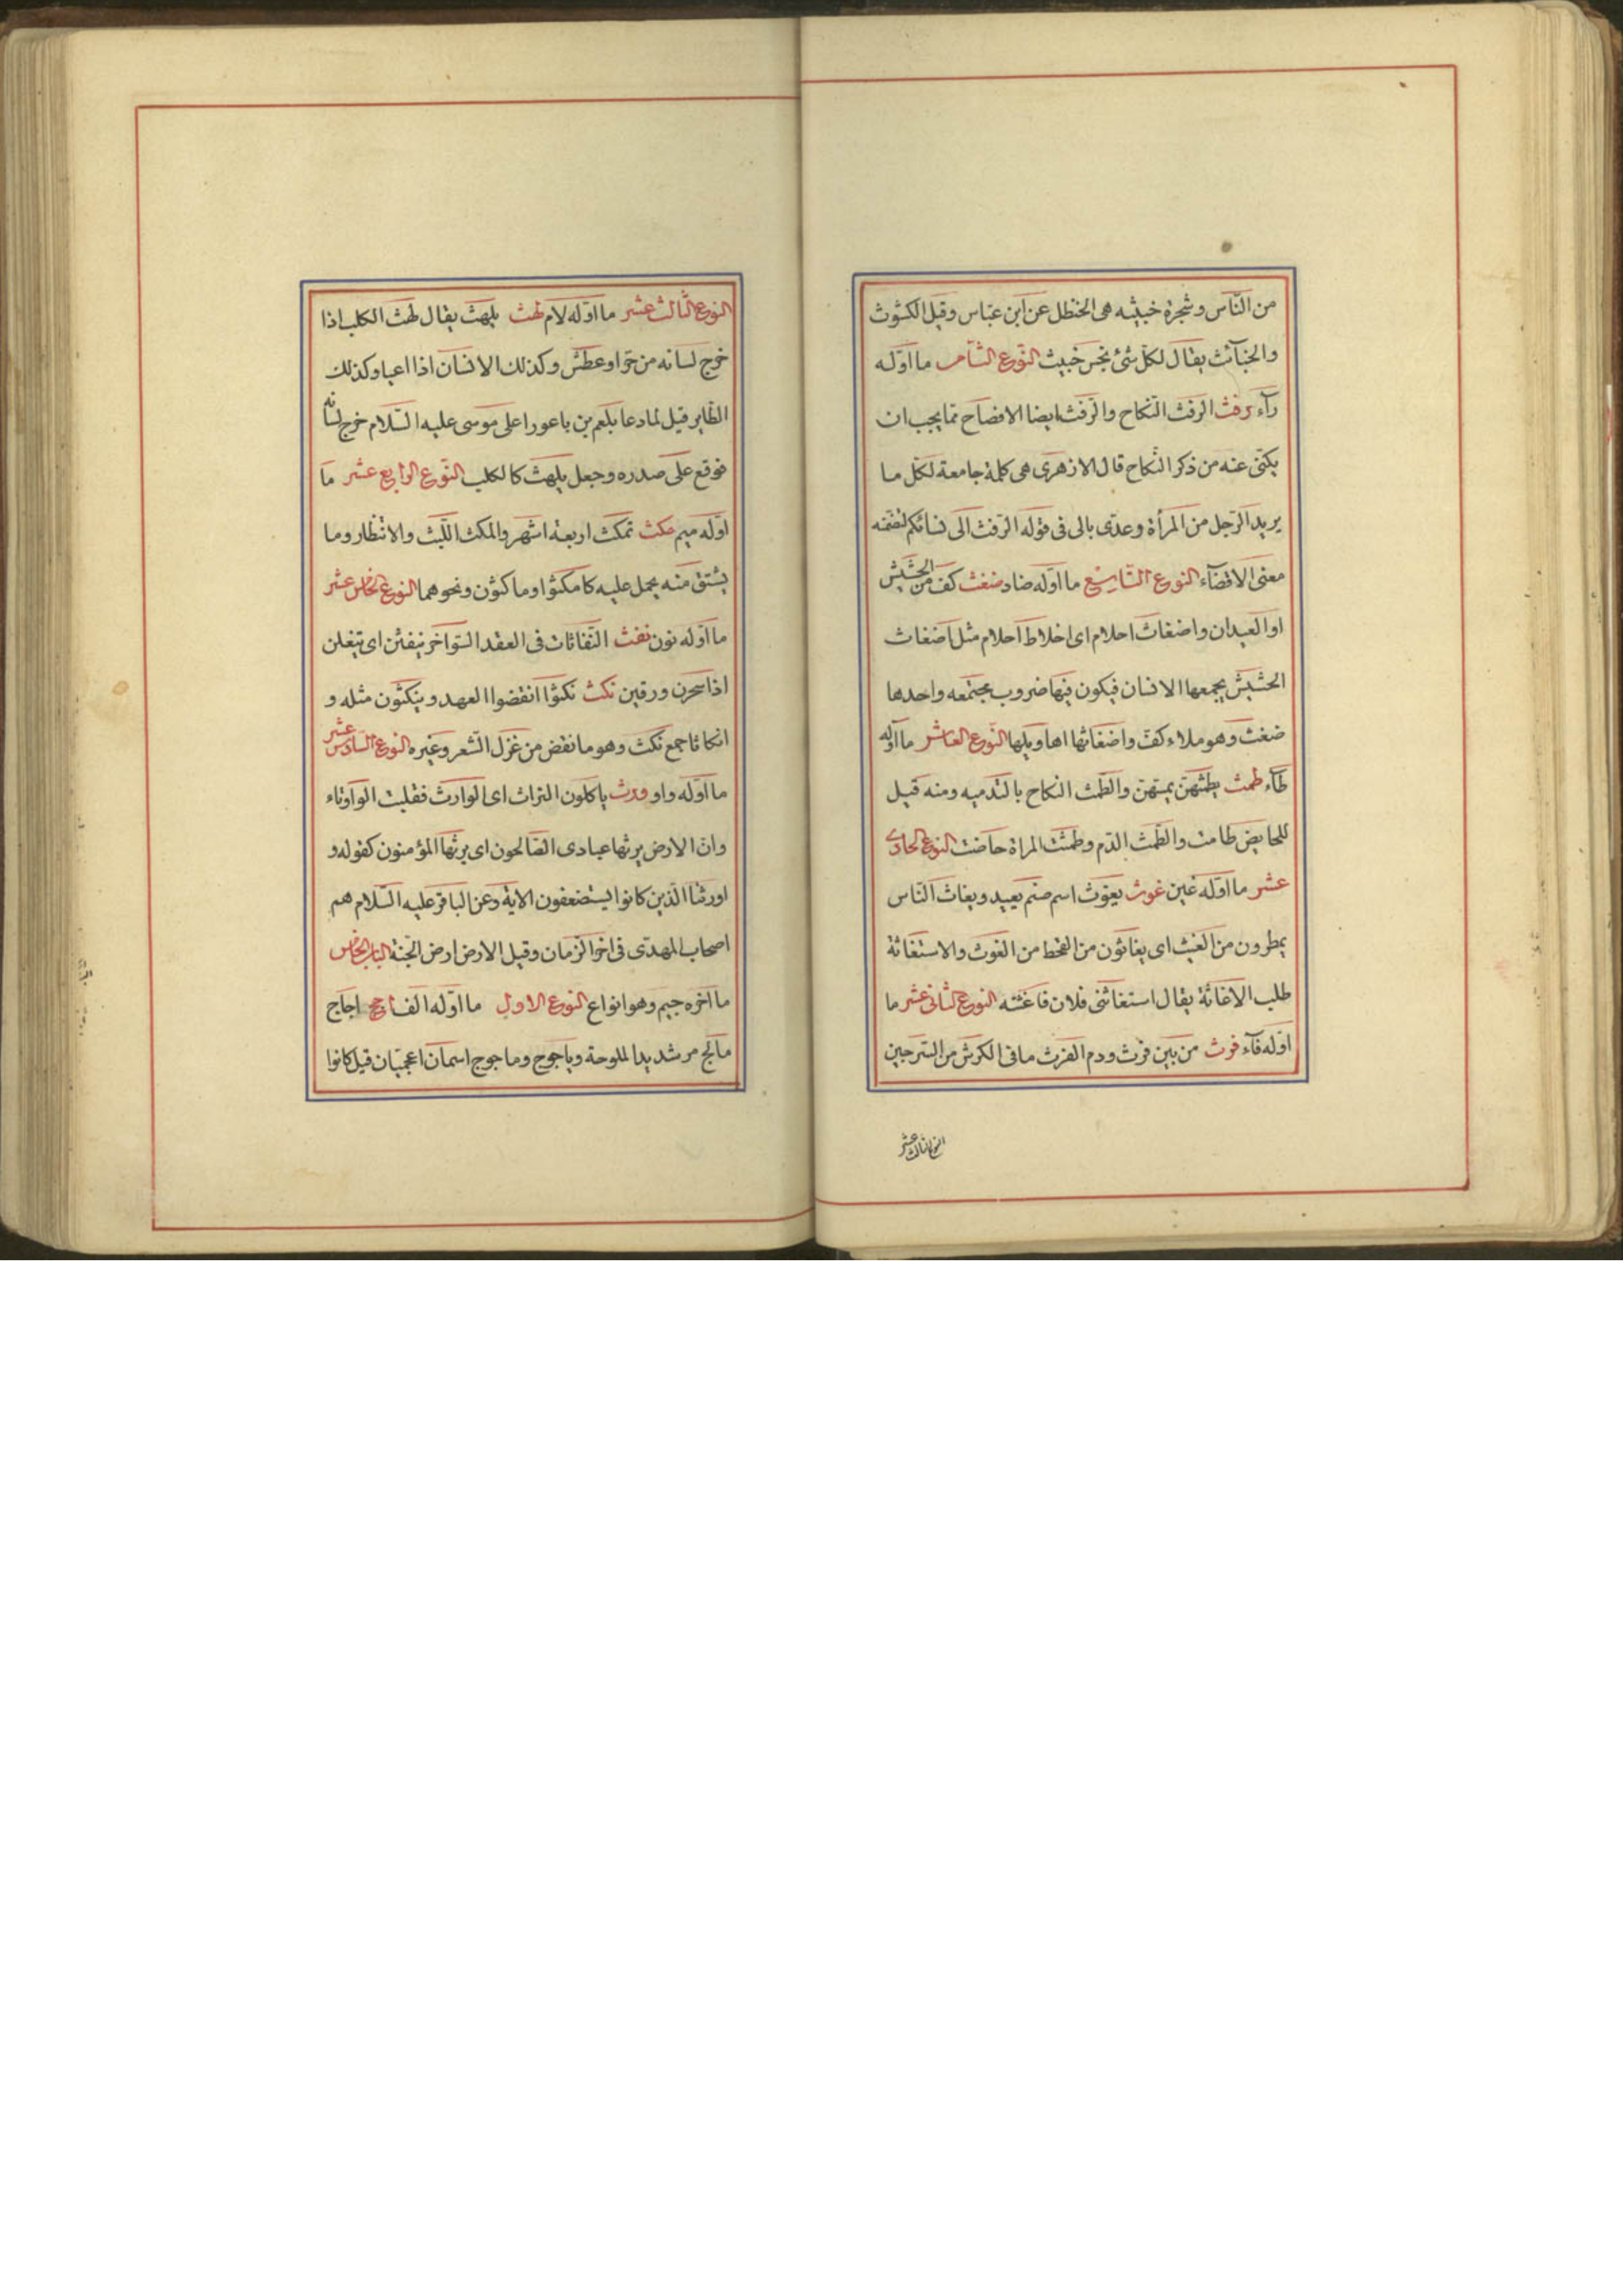 من النّاس وشجرة خبيثه هى الحنظل عن ابن عبّاس وقيل الكشوث
والخبآئث يقال لكلّ شئ نجس خبيث النّوع الثّامن ما اوّله
رآء رفث الرفث النّكاح والرّفث ايضا الافصاح ممّا يجب ان
يكنّى عنه من ذكر النّكاح قال الازهرى هى كلمة جامعة لكلّ ما
يريد الرّجل من المرأة وعدّى بالى فى قوله الرّفث الى نسائكم لتضمّنه
معنى الافضآء النوع التّاسع ما اوّله ضاد ضغث كفّ من الحشيش
او العيدان واضغاث احلام اى اخلاط احلام مثل اضغاث
الحشيش يجمعها الانسان فيكون فيها ضروب مجتمعه واحدها
ضغث وهو ملاء كفّ واضغاثها اهاويلها النّوع العاشر ما اوّله
طآء طمث يطمثهنّ يمسّهنّ والطّمث النكاح بالتّدميه ومنه قيل
للحايض طامث والطّمث الدّم وطمثت المراة حاضت النوع الحادى
عشر ما اوّله غين غوث يغوث اسم صنم يعبد ويغاث النّاس
يمطرون من الغيث اى يغاثون من القحط من الغوث والاستغاثة
طلب الاغاثة يقال استغاثنى فلان فاغثته النوع الثانى عشر ما
اوّله فآء فرث من بين فرث ودم الفرث ما فى الكرش من السّرجين
النوع الثالث عشر
النوع الثّالث عشر ما اوّله لام لهث يلهث يقال لهث الكلب اذا
خرج لسانه من حرّ او عطش وكذلك الانسان اذا اعيا وكذلك
الطّاير قيل لما دعا بلعم بن باعورا على موسى عليه السّلام خرج لسانه
فوقع على صدره وجعل يلهث كالكلب النّوع الرابع عشر ما
اوّله ميم مكث تمكث اربعة اشهر والمكث اللّبث والانتظار وما
يشتق منه يحمل عليه كامكثوا وماكثون ونحوهما النوع الخامس عشر
ما اوّله نون نفث النّفاثات فى العقد السّواحر ينفثن اى يتفلن
اذا سحرن ورقين نكث نكثوا انقضوا العهد وينكثون مثله و
انكاثا جمع نكث وهو ما نقض من غزل الشّعر وغيره النوع السّادس عشر
ما اوّله واو ورث ياكلون التراث اى الوارث فقلبت الواو تاء
وانّ الارض يرثها عبادى الصّالحون اى يرثها المؤمنون كقوله و
اورثنا الّذين كانوا يستضعفون الاية وعن الباقر عليه السّلام هم
اصحاب المهدّى فى اخر الزمان وقيل الارض ارض الجنّة الباب الخامس
ما اخره جيم وهو انواع النوع الاول ما اوّله الف اجج اجاج
مالح مر شديد الملوحة وياجوج وماجوج اسمان اعجميّان قيل كانوا